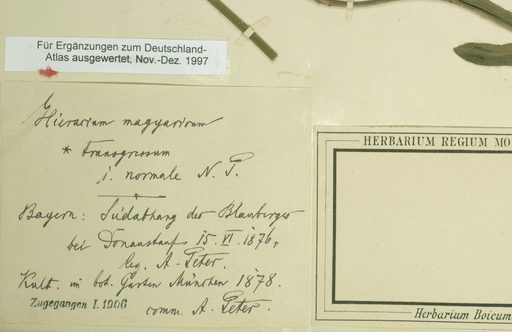 Für Ergänzungen zum Deutschland-
Atlas ausgewertet, Nov.-Dez. 1997
Hieracium magyaricum
* transgressum
1. normale N. P.
Bayern: Südabhang des Blauberges
bei Donaustauf 15. VI. 1876,
leg. A. Peter.
Kult. im bot. Garten München 1878.
Zugegangen I. 1906 comm. A. Peter.
HERBARIUM REGIUM MO
Herbarium Boicum